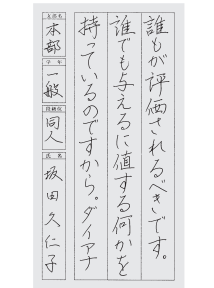 誰もが評価されるべきです。
誰でも与えるに値する何かを
持っているのですから。ダイアナ
支部名
本部
学年
一般
段級位
同人
氏名
坂田久仁子